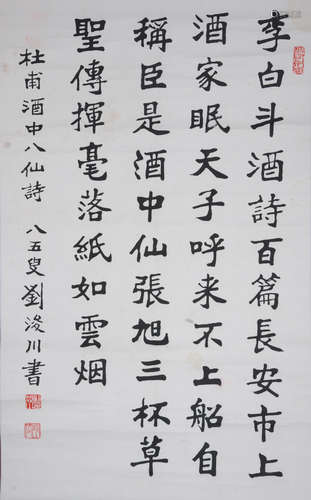 李白斗酒詩百篇長安市上
酒家眠天子呼来不上船自
稱臣是酒中仙張旭三杯草
聖傳揮毫落紙如雲烟
杜甫酒中八仙詩 八五叟劉浚川書